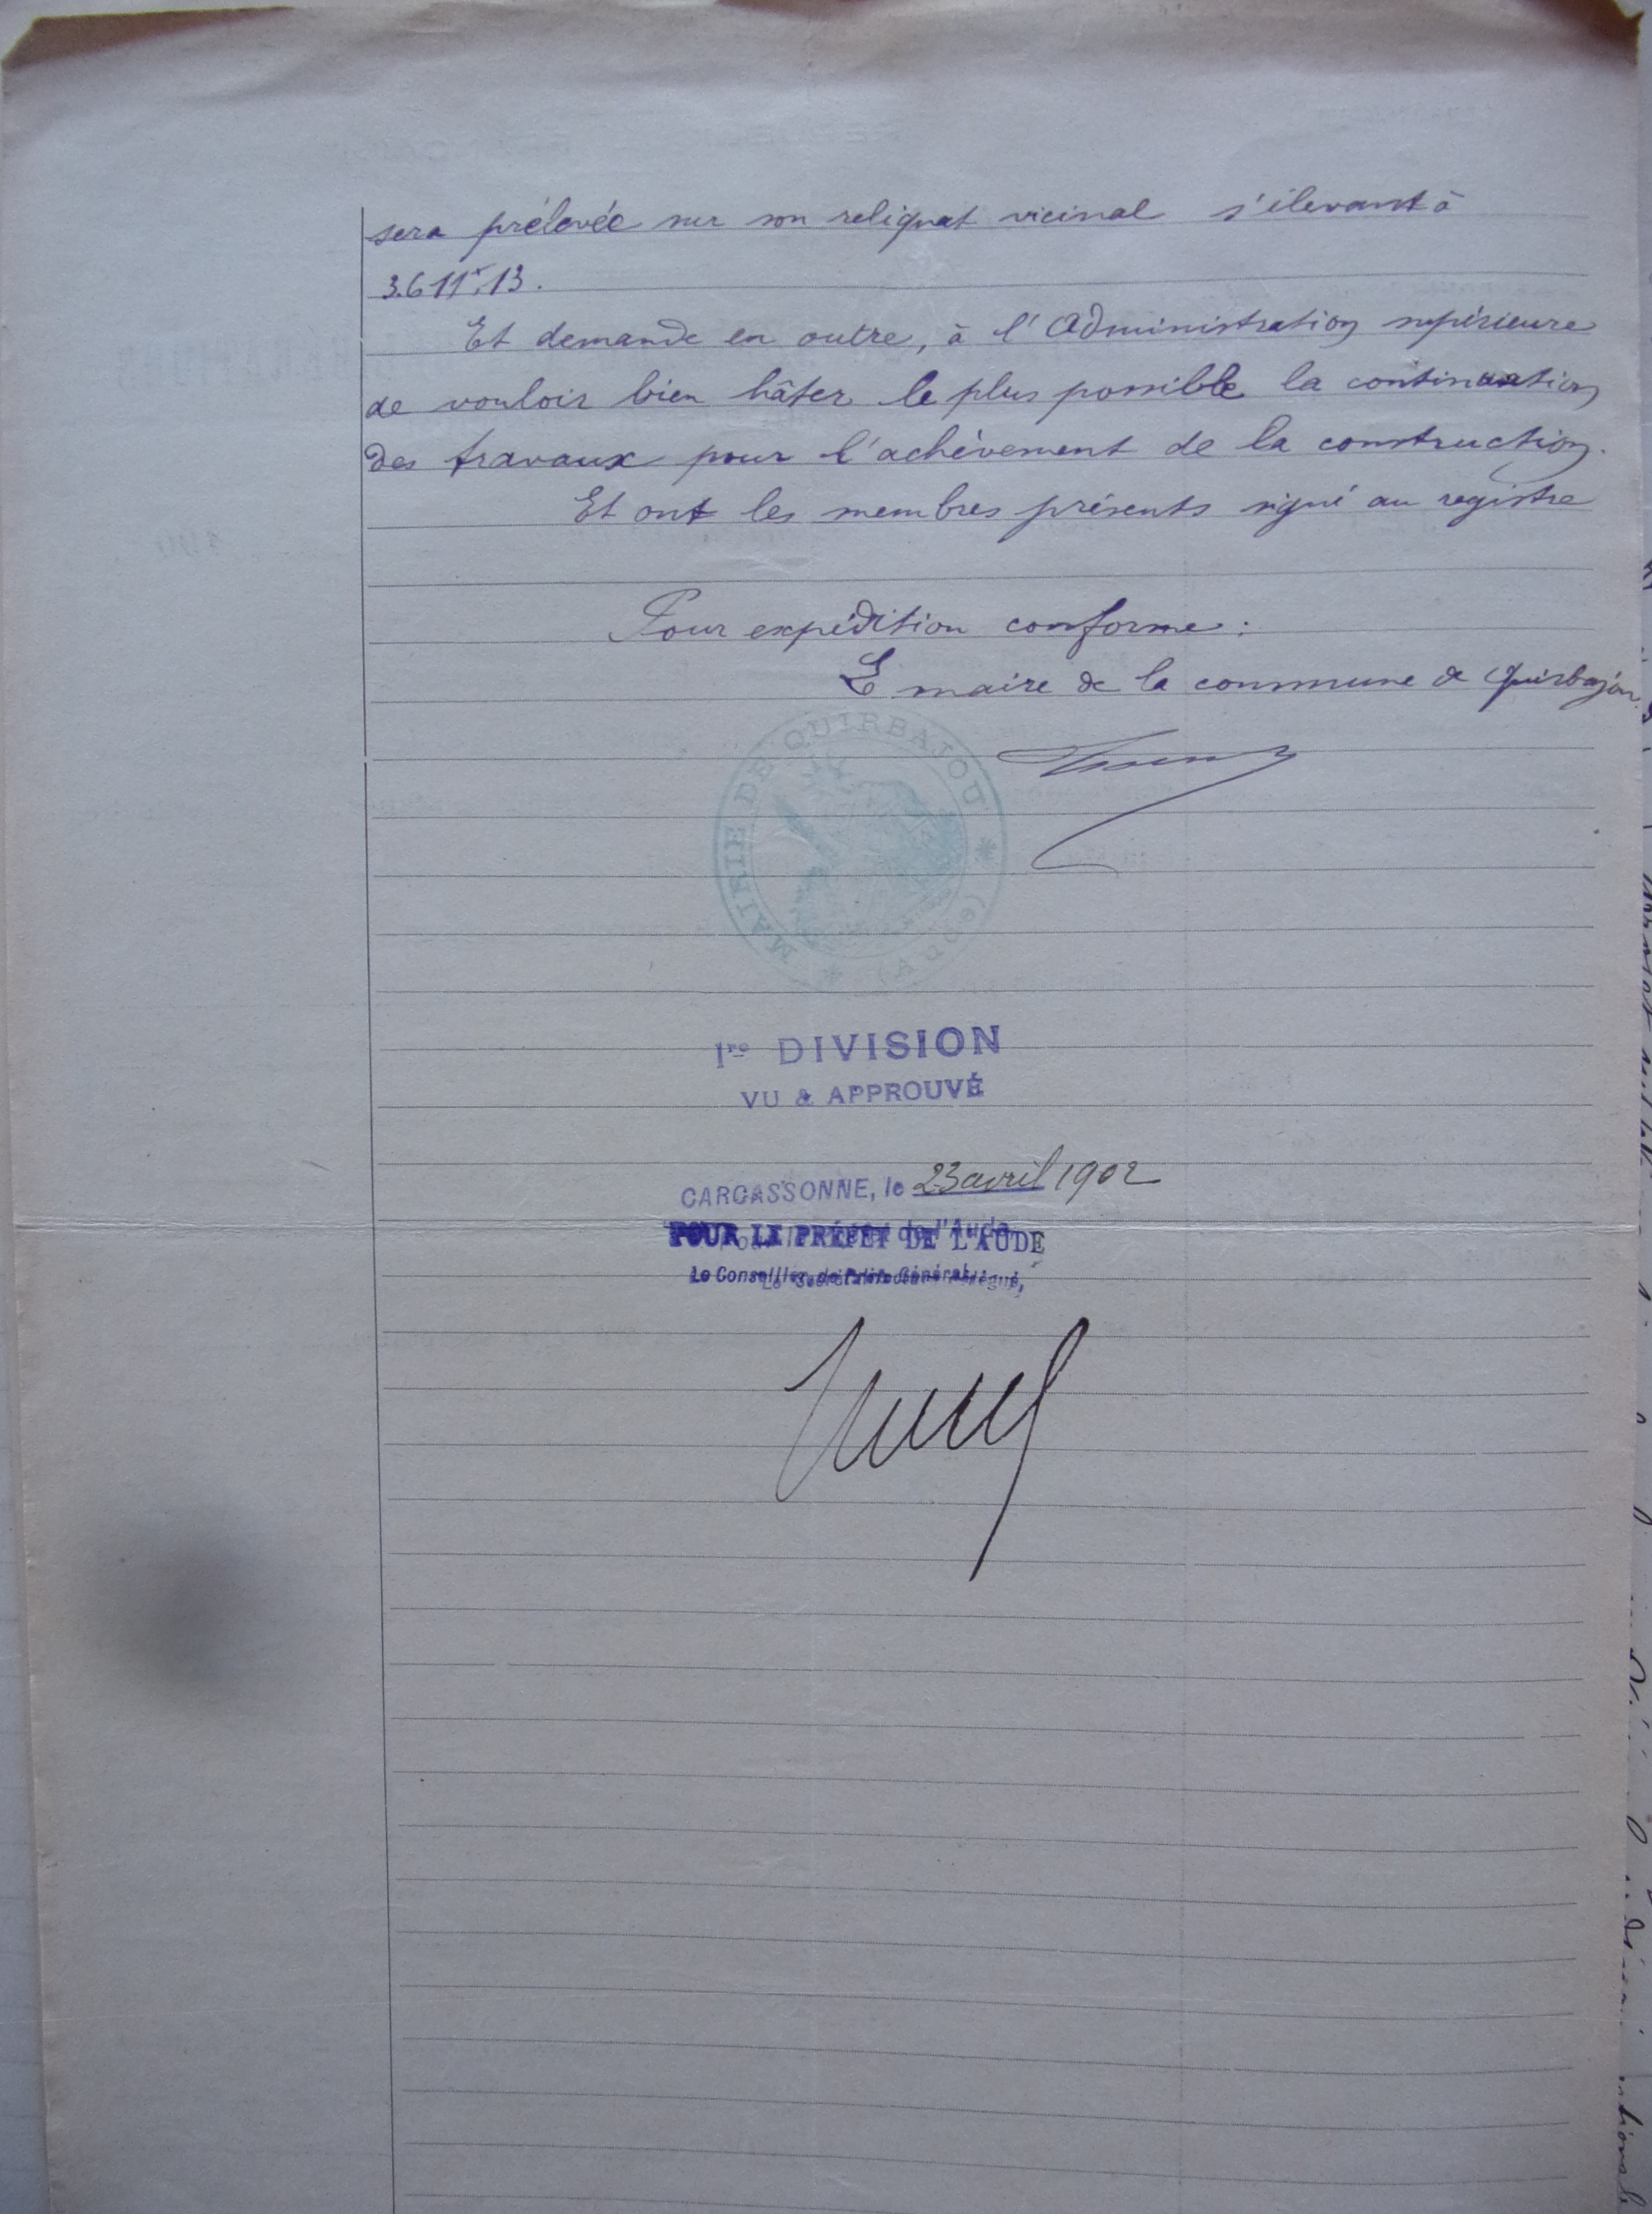 sera prélevée sur son reliquat vicinal s'élevant à
3.611f,13.
Et demande en outre, à l'Administration supérieure
de vouloir bien hâter le plus possible la continuation
des travaux pour l'achèvement de la construction.
Et ont les membres présents signé au registre
Pour expédition conforme :
Le maire de la commune de Quirbajou
MAIRIE DE QUIRBAJOU
(Aude)
1re DIVISION
VU & APPROUVÉ
CARCASSONNE, le 23 avril 1902
POUR LE PRÉFET DE L'AUDE
Le Conseiller de Préfecture délégué,